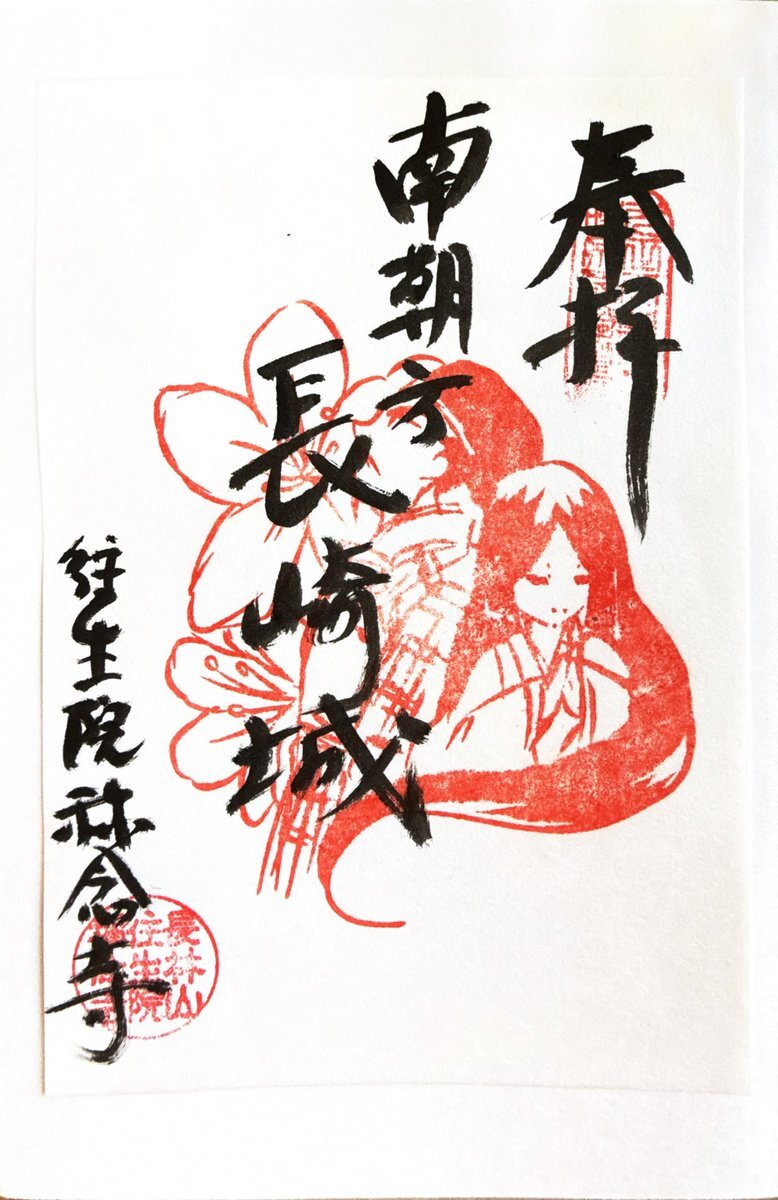 奉拝
南朝方
長崎城
往生院称念寺
長林山
往生院